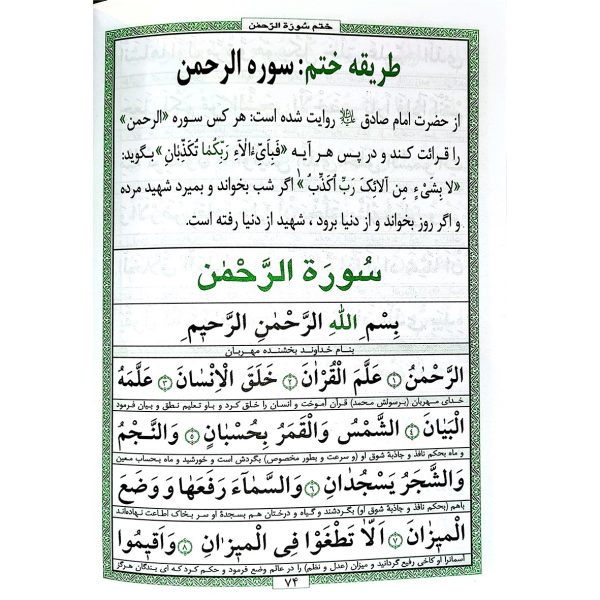 ختم سورة الرحمن
طریقه ختم: سوره الرحمن
از حضرت امام صادق روایت شده است: هر کس سوره «الرحمن»
را قرائت کند و در پس هر آیه «فَبِاَیِّ ءٰالآءِ رَبِّکُما تُکَذِّبٰانِ» بگوید:
«لا بِشَیْءٍ مِن آلائِکَ رَبِّ اُکَذِّبُ» اگر شب بخواند و بمیرد شهید مرده
و اگر روز بخواند و از دنیا برود ، شهید از دنیا رفته است.
سُورَة الرَّحْمٰن
بِسْمِ اللهِ الرَّحْمٰنِ الرَّحيمِ
بنام خداوند بخشنده مهربان
الرَّحْمٰنُ ١ عَلَّمَ الْقُرْاٰنَ ٢ خَلَقَ الْاِنْسٰانَ ٣ عَلَّمَهُ
خدای مهربان (برسولش محمد) قرآن آموخت و انسان را خلق کرد و باو تعلیم نطق و بیان فرمود
الْبَيٰانَ ٤ الشَّمْسُ وَالْقَمَرُ بِحُسْبٰانٍ ٥ وَالنَّجْمُ
و ماه بحکم نافذ و جاذبۀ شوق او (و سرعت و بطور مخصوص) بگردش است و خورشید و ماه بحساب معین
وَالشَّجَرُ يَسْجُدٰانِ ٦ وَالسَّمٰاءَ رَفَعَهٰا وَوَضَعَ
باهم (بحکم نافذ و جاذبۀ شوق او) بگردشند و گیاه و درختان هم بسجدۀ او سر بخاک اطاعت نهاده‌اند
الْميزٰانَ ٧ اَلّا تَطْغَوْا فِي الْميزٰانِ ٨ وَاَقيمُوا
آسمانرا او کاخی رفیع گردانید و میزان (عدل و نظم) را در عالم وضع فرمود و حکم کرد که ای بندگان هرگز
٧۴